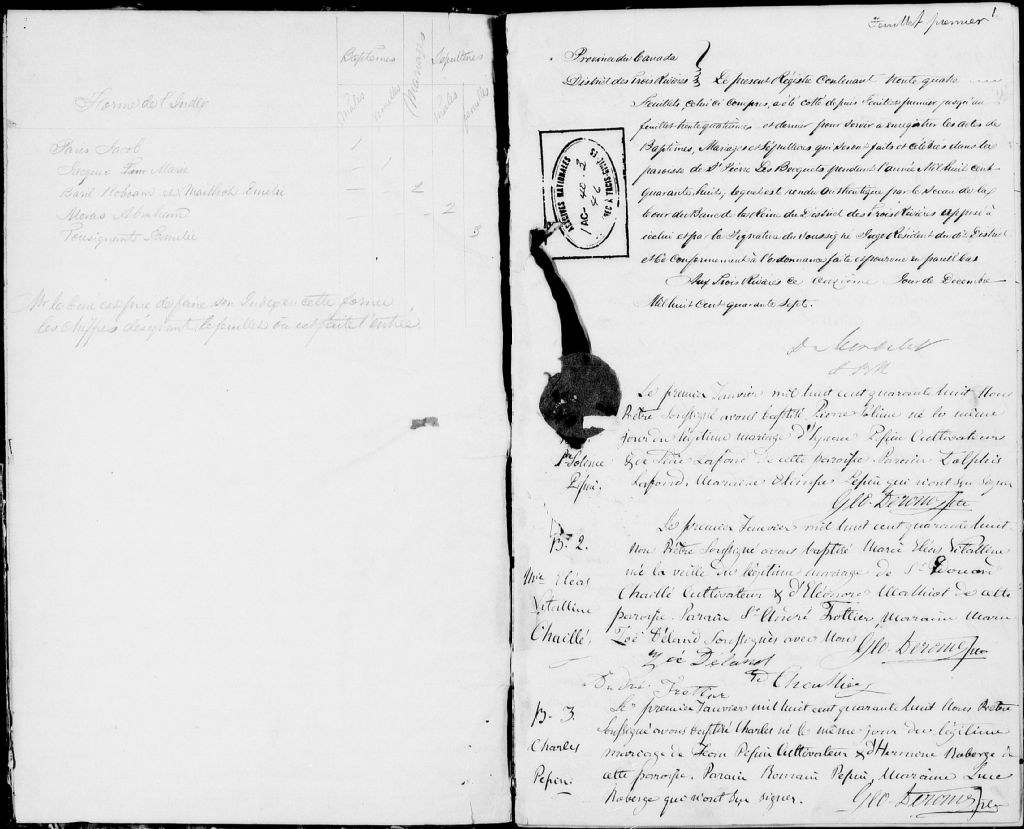 Baptêmes Mariages Sépultures
Forme de l'Index
Mâles Femelles Mâles Femelles
Paris Jacob — 1
Marie — 1
Basil et Emélie — 2
Moras Abraham — 2
Tousignante Emilie 3
Mr le Curé est prié de faire son Index en cette forme
les chiffres désignant le feuillet où est faite l'entrée
Feuillet premier 1
Province du Canada
District des Trois Rivières Le présent Régistre contenant trente quatre
feuillets, celui ci compris, a été cotté depuis feuillet premier jusqu'au
feuillet trente quatrième et dernier pour servir a enregistrer les actes de
Baptêmes, Mariages et Sépultures qui seront faits et célébrés dans la
paroisse de St Pierre Les Becquets pendant l'année Mil huit cent
quarante huit, lequel est rendu authentique par le Sceau de la
Cour du Banc de la Reine du District des Trois Rivières apposé à
icelui et par la Signature du Soussigné Juge Résident du dit District
et ce conformément à l'ordonnance faite et pourvue en pareil cas
Aux Trois Rivières ce onzième Jour de Décembre
Mil huit cent quarante Sept.
ARCHIVES NATIONALES
Le premier Janvier mil huit cent quarante huit Nous
Prêtre Soussigné avons baptisé Pierre Solime né le même
jour du légitime mariage d'Ignace Pepin Cultivateur
& de Julie Lafond de cette paroisse. Parain Zolphis
Lafond, Maraine Olimpe Pepin qui n'ont su signer
Geo. Derome Ptre
Pre Solime
Pepin.
Le premier Janvier mil huit cent quarante huit
B- 2. Nous Prêtre Soussigné avons baptisé Marie Eléas Vitalline
née la veille du légitime mariage de Sr Edouard
Mie Eléas Chaillé Cultivateur & d'Eléonore Mathiot de cette
Vitalline paroisse. Parain Sr André Trottier Maraine Marie
Chaillé, Zoé Déland Soussignés avec Nous Geo. Derome Ptre
Zoé Déland
André Trottier
B- 3. Le premier Janvier mil huit cent quarante huit Nous Prêtre
Soussigné avons baptisé Charles né le même jour du légitime
Charles mariage de Jean Pepin Cultivateur & d'Hermine Roberge de
Pepin. cette paroisse. Parain Romain Pepin, Maraine Luce
Roberge qui n'ont su signer. Geo. Derome Ptre